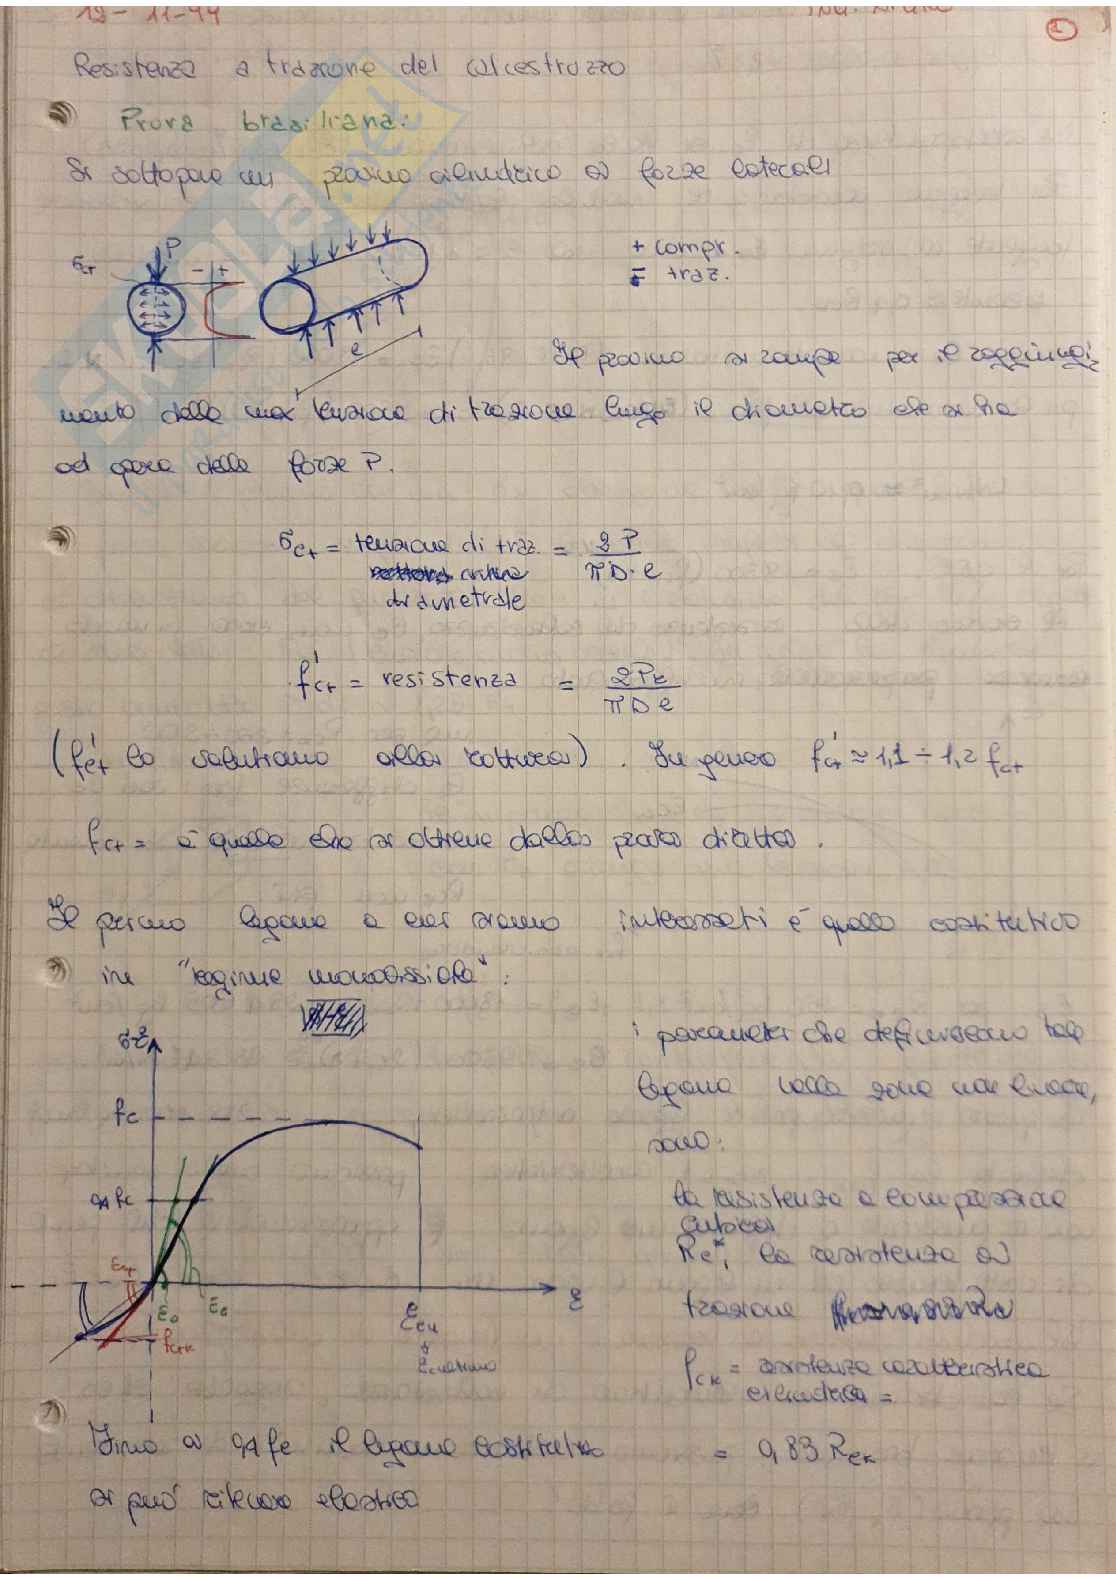 12-11-99
2
Resistenza a trazione del calcestruzzo
Prova brasiliana:
Si sottopone un provino cilindrico a forze laterali
P
σct
- +
+ compr.
- traz.
l
Il provino si rompe per il raggiungi
mento della max tensione di trazione lungo il diametro che si ha
ad opera delle forze P.
σct = tensione di traz. = 2P / πD·l
diametrale
f'ct = resistenza = 2Pr / πDl
(f'ct lo valutiamo alla rottura). In genere f'ct ≈ 1,1 ÷ 1,2 fct
fct = è quella che si ottiene dalla prova diretta.
Il primo legame a cui siamo interessati è quello costitutivo
in "regime monoassiale":
i parametri che definiscono tale
legame nella zona non lineare,
sono:
la resistenza a compressione
cubica
Rc, la resistenza a
trazione
fck = resistenza caratteristica
cilindrica =
= 0,83 Rck
fc
0,4 fc
ε
Ec
εcu
fctk
Fino a 0,4 fc il legame costitutivo
si può ritenere elastico